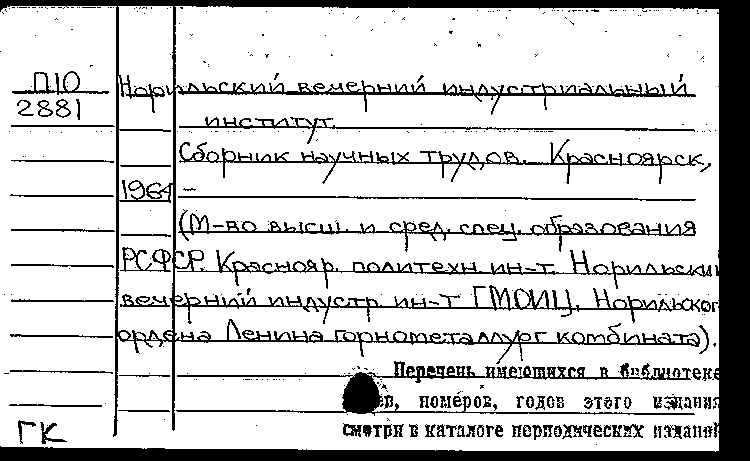 П10
2881
Норильский вечерний индустриальный
институт.
Сборник научных трудов. Красноярск,
1964 –
(М-во высш. и сред. спец. образования
РСФСР. Краснояр. политехн. ин-т. Норильский
вечерний индустр. ин-т ГМОИЦ, Норильског
ордена Ленина горнометаллург. комбината).
Перечень имеющихся в библиотеке
номеров, годов этого издания
смотри в каталоге периодических изданий
ГК